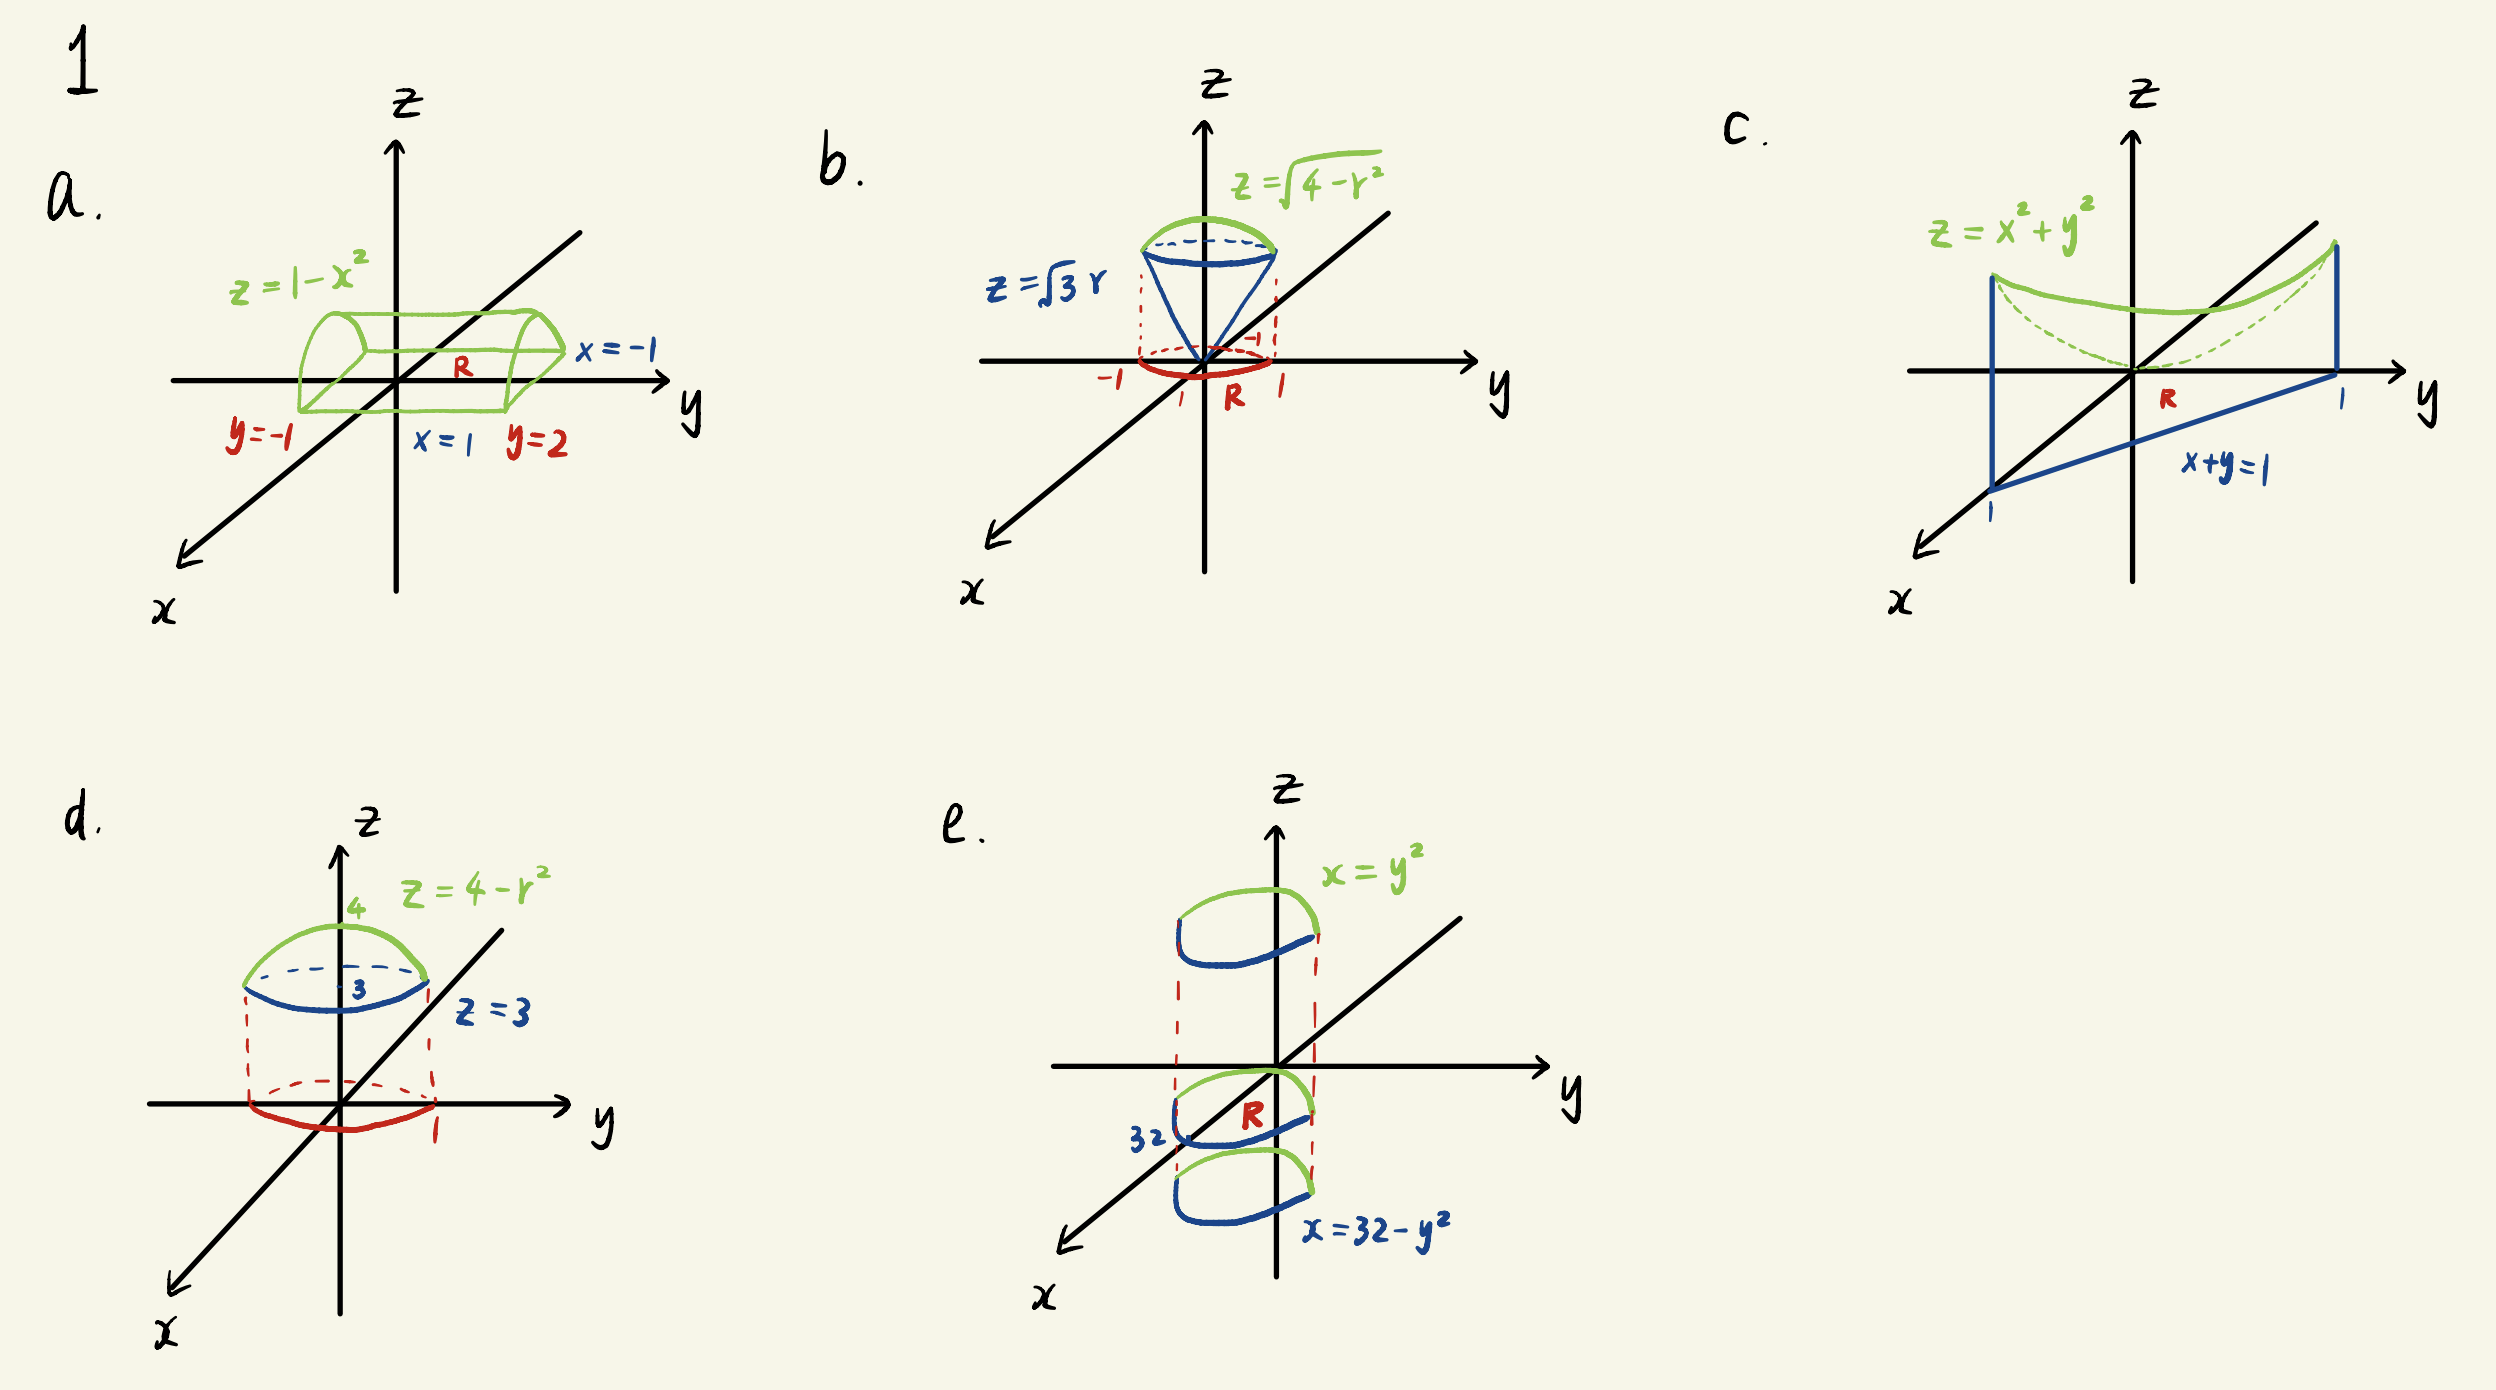 1
a.
z
z=1-x²
x=-1
R
y
y=-1
x=1
y=2
x
b.
z
z=√4-r²
z=√3 r
-1
-1
1
1
R
y
x
c.
z
z=x²+y²
R
1
y
x+y=1
1
x
d.
z
4
z=4-r²
3
z=3
1
y
x
e.
z
x=y²
y
R
32
x=32-y²
x